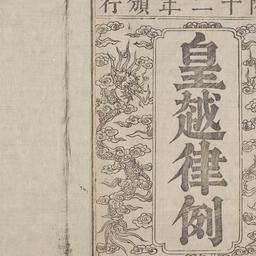 十二年頒行
皇越律例